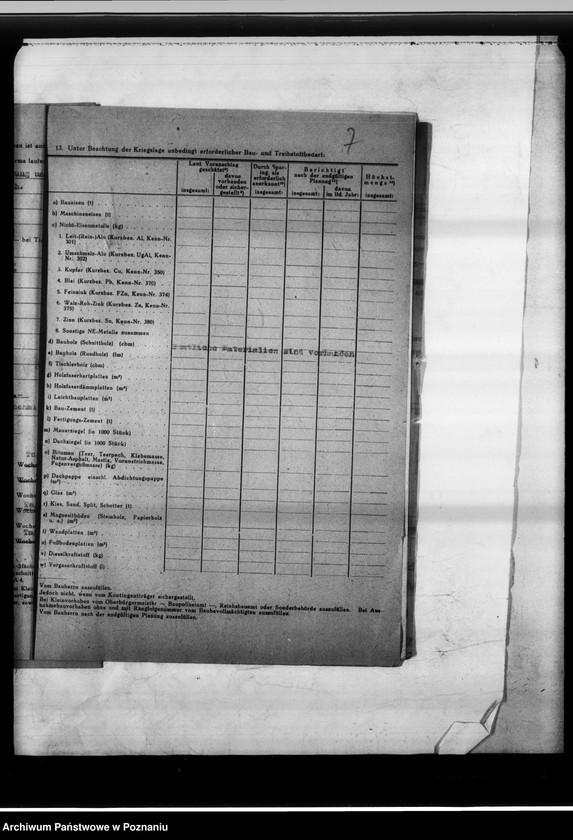 7
13. Unter Beachtung der Kriegslage unbedingt erforderlicher Bau- und Treibstoffbedarf:
Laut Voranschlag geschätzt
insgesamt:
davon vorhanden oder sichergestellt
Durch
als erforderlich anerkannt
insgesamt:
Berichtigt nach der endgültigen Planung
insgesamt:
davon im lfd. Jahr:
Höchstmenge
insgesamt:
a) Baueisen (t)
b) Maschineneisen (t)
c) Nicht-Eisenmetalle (kg)
1. Leit-(Rein-)Alu (Kurzbez. Al, Kenn-Nr. 301)
2. Umschmelz-Alu (Kurzbez. UgAl, Kenn-Nr. 302)
3. Kupfer (Kurzbez. Cu, Kenn-Nr. 350)
4. Blei (Kurzbez. Pb, Kenn-Nr. 370)
5. Feinzink (Kurzbez. FZn, Kenn-Nr. 374)
6. Walz-Roh-Zink (Kurzbez. Zn, Kenn-Nr. 375)
7. Zinn (Kurzbez. Sn, Kenn-Nr. 380)
8. Sonstige NE-Metalle zusammen
d) Bauholz (Schnittholz) (cbm)
e) Bauholz (Rundholz) (fm)
Materialien sind vorhanden
f) Tischlerholz (cbm)
g) Holzfaserhartplatten (m²)
h) Holzfaserdämmplatten (m²)
i) Leichtbauplatten (m²)
k) Bau-Zement (t)
l) Fertigungs-Zement (t)
m) Mauerziegel (in 1000 Stück)
n) Dachziegel (in 1000 Stück)
o) Bitumen (Teer, Teerpech, Klebemasse,
Natur-Asphalt, Mastix, Voranstrichmasse,
Fugenvergußmasse) (kg)
p) Dachpappe einschl. Abdichtungspappe
(m²)
q) Glas (m²)
r) Kies, Sand, Split, Schotter (t)
s) Magnesitböden (Steinholz, Papierholz
u. a.) (m²)
t) Wandplatten (m²)
u) Fußbodenplatten (m²)
v) Dieselkraftstoff (kg)
w) Vergaserkraftstoff (l)
Vom Bauherrn auszufüllen.
Jedoch nicht, wenn vom Kontingentträger sichergestellt.
Bei Kleinvorhaben vom Oberbürgermeister —, Baupolizeiamt —, Reichsbauamt oder Sonderbehörde auszufüllen. Bei Aus-
nahmebauvorhaben ohne und mit Rangfolgenummer vom Baubevollmächtigten auszufüllen.
Vom Bauherrn nach der endgültigen Planung auszufüllen.
Archiwum Państwowe w Poznaniu